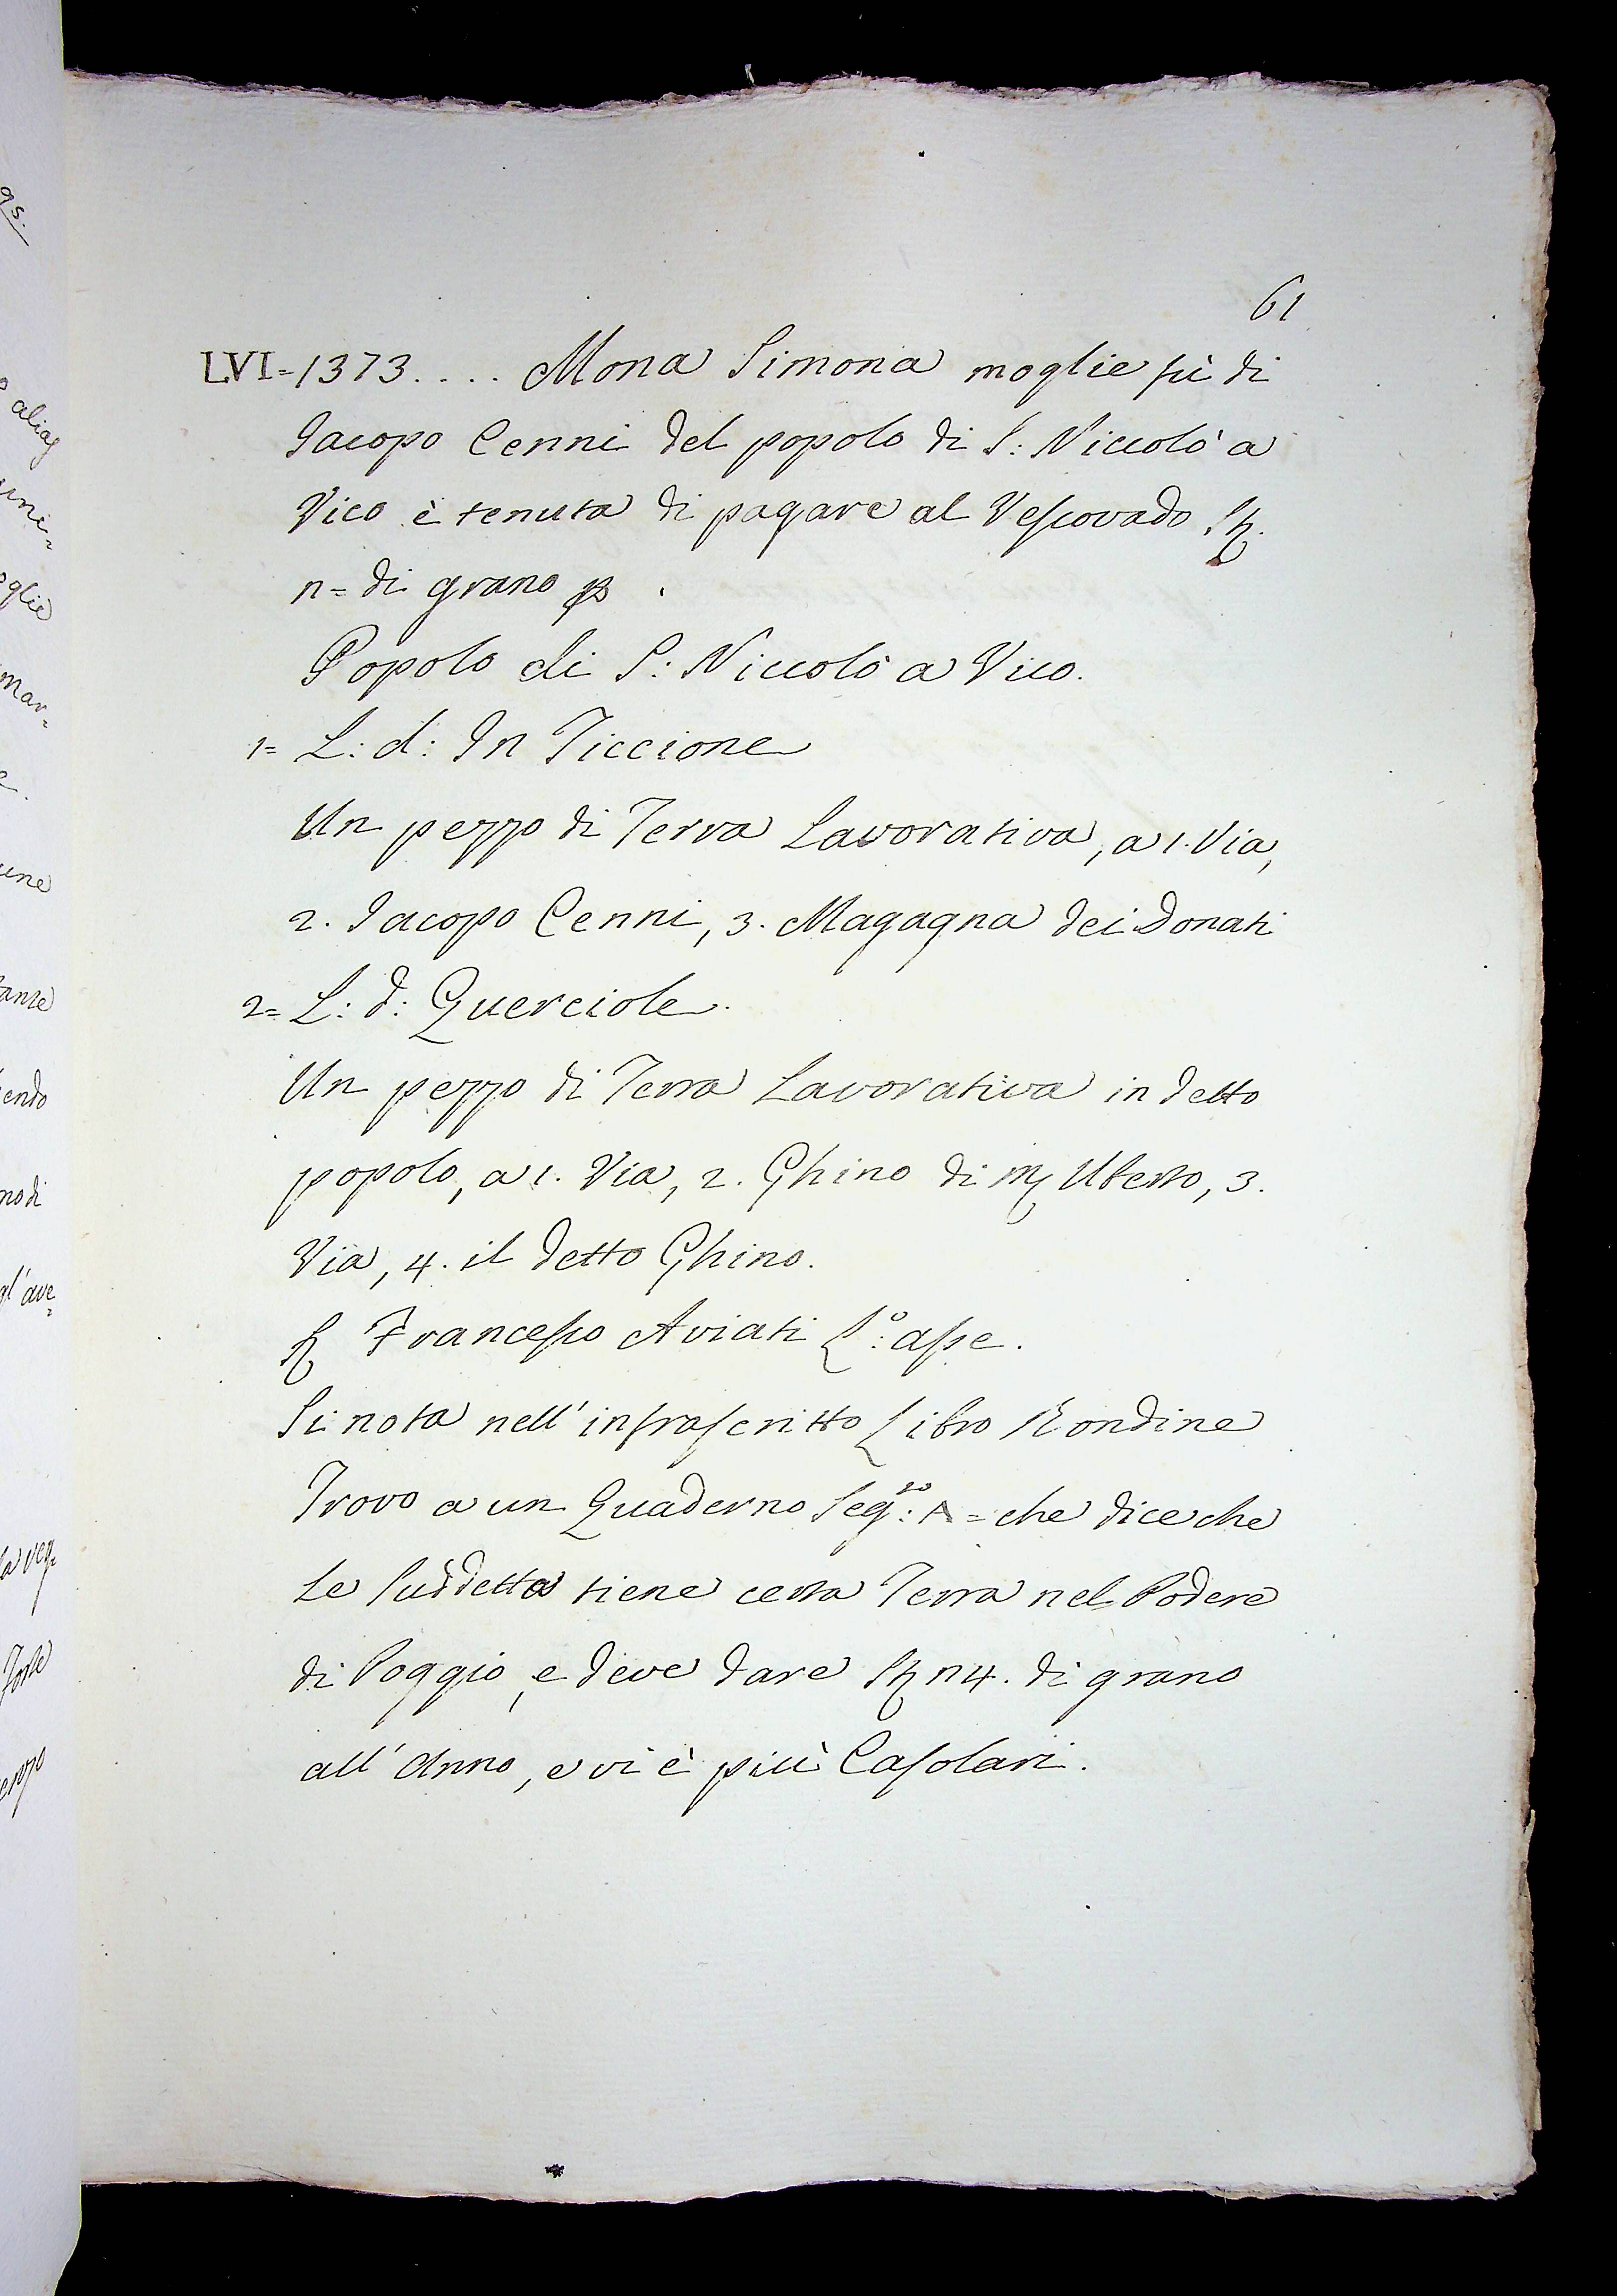 61
LVI=1373.... Mona Simona moglie fù di
Jacopo Cenni del popolo di S: Niccolò a
Vico è tenuta di pagare al Vescovado
n= di grano
Popolo di S: Niccolò a Vico.
1= L: d: In Ticcione
Un pezzo di Terra Lavorativa, a 1. Via,
2. Jacopo Cenni, 3. Magagna dei Donati
2= L: d: Querciole.
Un pezzo di Terra Lavorativa in detto
popolo, a 1. Via, 2. Ghino di Uberto, 3.
Via, 4. il detto Ghino.
Francesco Aviati
Si nota nell'infrascritto Libro Rondine
Trovo a un Quaderno Seg:to A= che dice che
Le Suddetta tiene certa Terra nel Podere
di Poggio, e deve dare n 4. di grano
all'Anno, e vi è più Casolari.